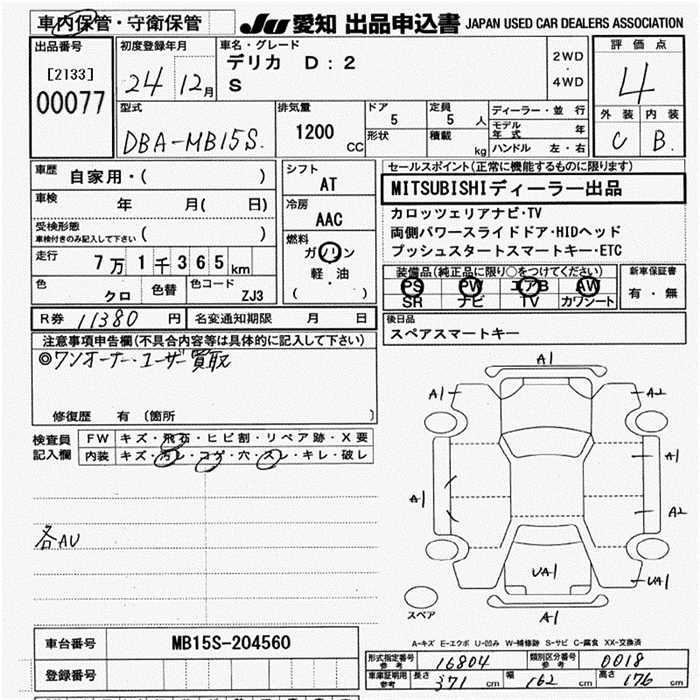 車内保管・守衛保管
JU 愛知 出品申込書 JAPAN USED CAR DEALERS ASSOCIATION
出品番号
[2133]
00077
初度登録年月
24年 12月
車名・グレード
デリカ D:2
S
2WD
・
4WD
評価点
4
外装 内装
C B.
型式
DBA-MB15S.
排気量
1200 CC
ドア
5
定員
5 人
形状
積載
kg
ディーラー・並行
モデル年式 年
ハンドル 左・右
車歴
自家用・( )
車検
年 月( 日)
受検形態
車検付きのみ記入して下さい ( )
走行
7万1千365km
色
クロ
色替
色コード
ZJ3
シフト
AT
冷房
AAC
燃料
ガソリン
軽・油
( )
セールスポイント(正常に機能するものに限ります)
MITSUBISHIディーラー出品
カロッツェリアナビ・TV
両側パワースライドドア・HIDヘッド
プッシュスタートスマートキー・ETC
装備品(純正品に限り○をつけてください)
PS PW エアB AW
SR ナビ TV カワシート
新車保証書
有・無
R券 11380 円
名変通知期限 月 日
後日品
スペアスマートキー
注意事項申告欄(不具合内容等は具体的に記入して下さい)
◎ワンオーナー・ユーザー買取
修復歴 有 〔箇所 〕
検査員記入欄
FW キズ・飛石・ヒビ割・リペア跡・X要
内装 キズ・汚レ・コゲ・穴・スレ・キレ・破レ
各AU
A1
A1
A2
A1
A1
A2
UA1
UA1
A1
スペア
A-キズ E-エクボ U-凹み W-補修跡 S-サビ C-腐食 XX-交換済
車台番号 MB15S-204560
登録番号
形式指定番号 参考 16804
類別区分番号 参考 0018
車庫証明用 参考 長さ 371 cm 幅 162 cm 高さ 176 cm